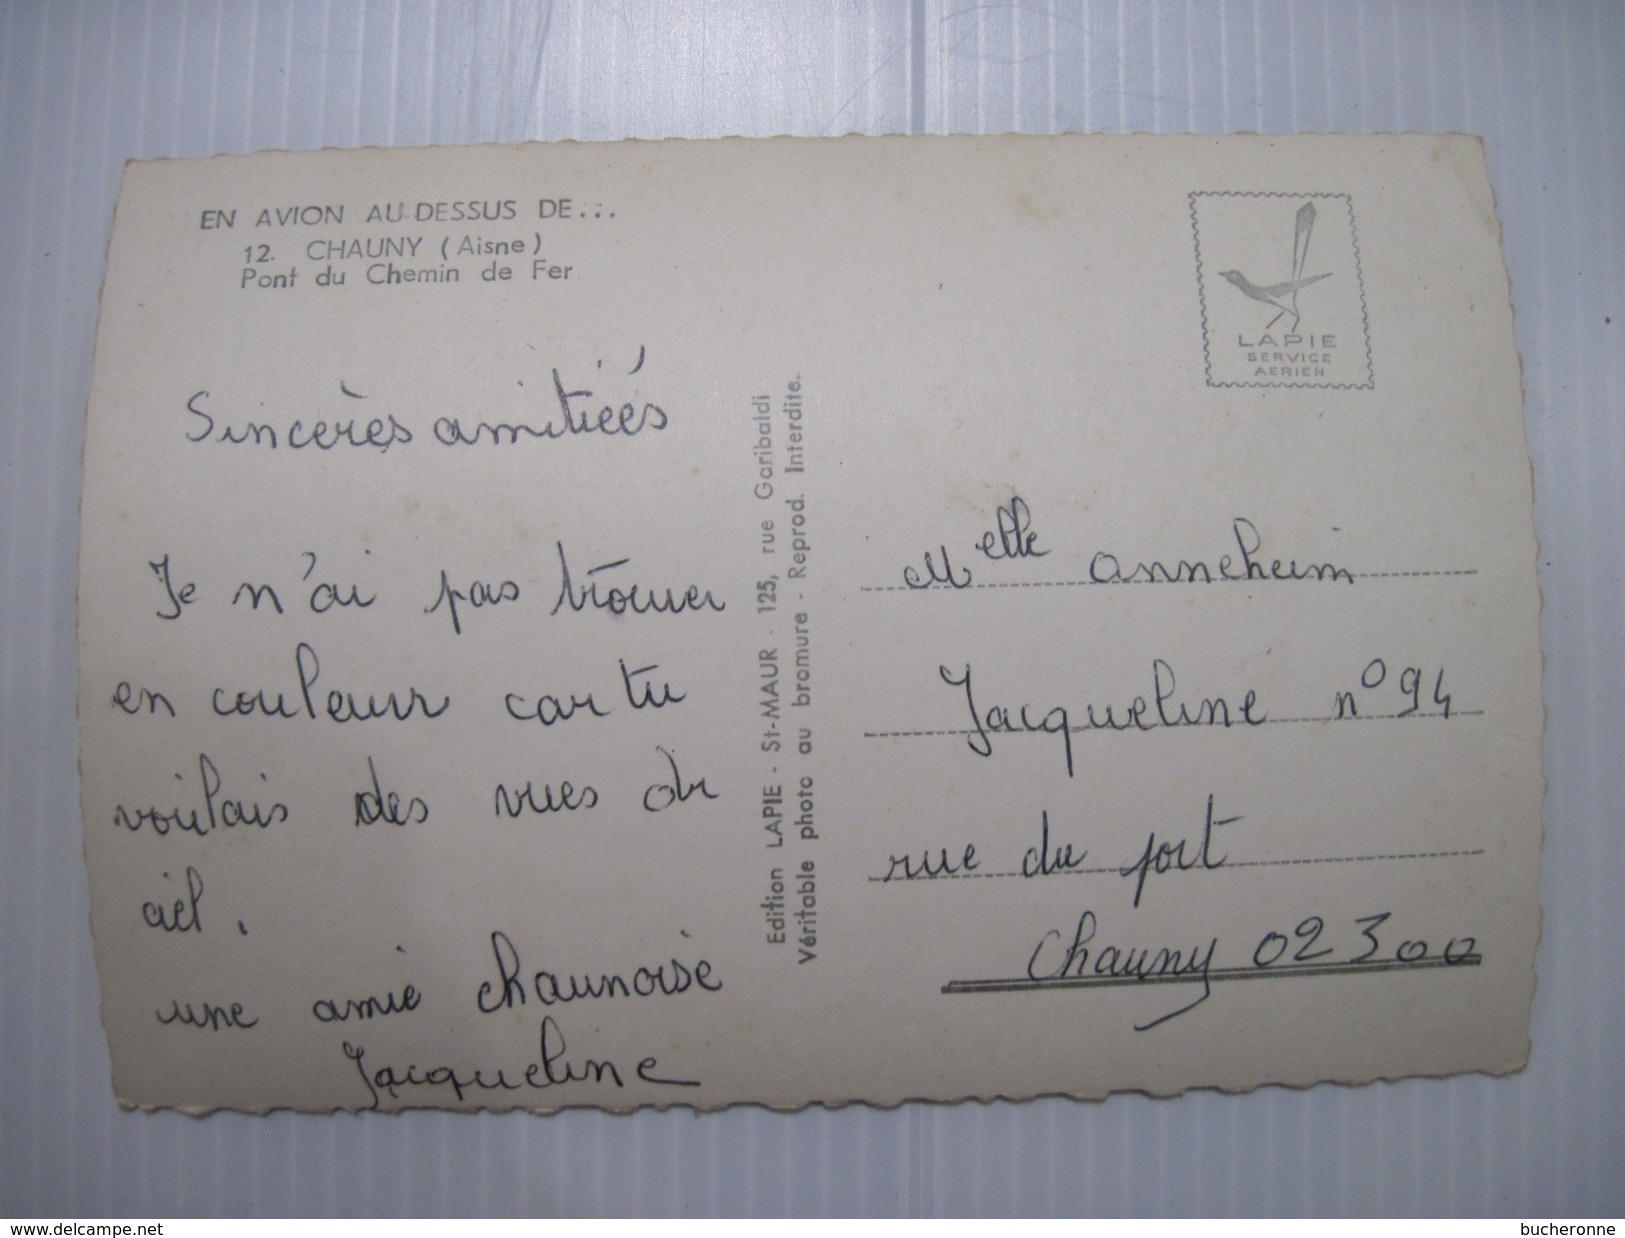 EN AVION AU-DESSUS DE...
12. CHAUNY (Aisne)
Pont du Chemin de Fer
Sincères amitiéés
Je n'ai pas trouver
en couleurr car tu
voulais des vues du
ciel.
une amie chaunoise
Jacqueline
Edition LAPIE - St-MAUR - 125, rue Garibaldi
Véritable photo au bromure - Reprod. Interdite.
LAPIE
SERVICE
AERIEN
Melle anneheim
Jacqueline n° 94
rue du port
Chauny 02300
www.delcampe.net
bucheronne